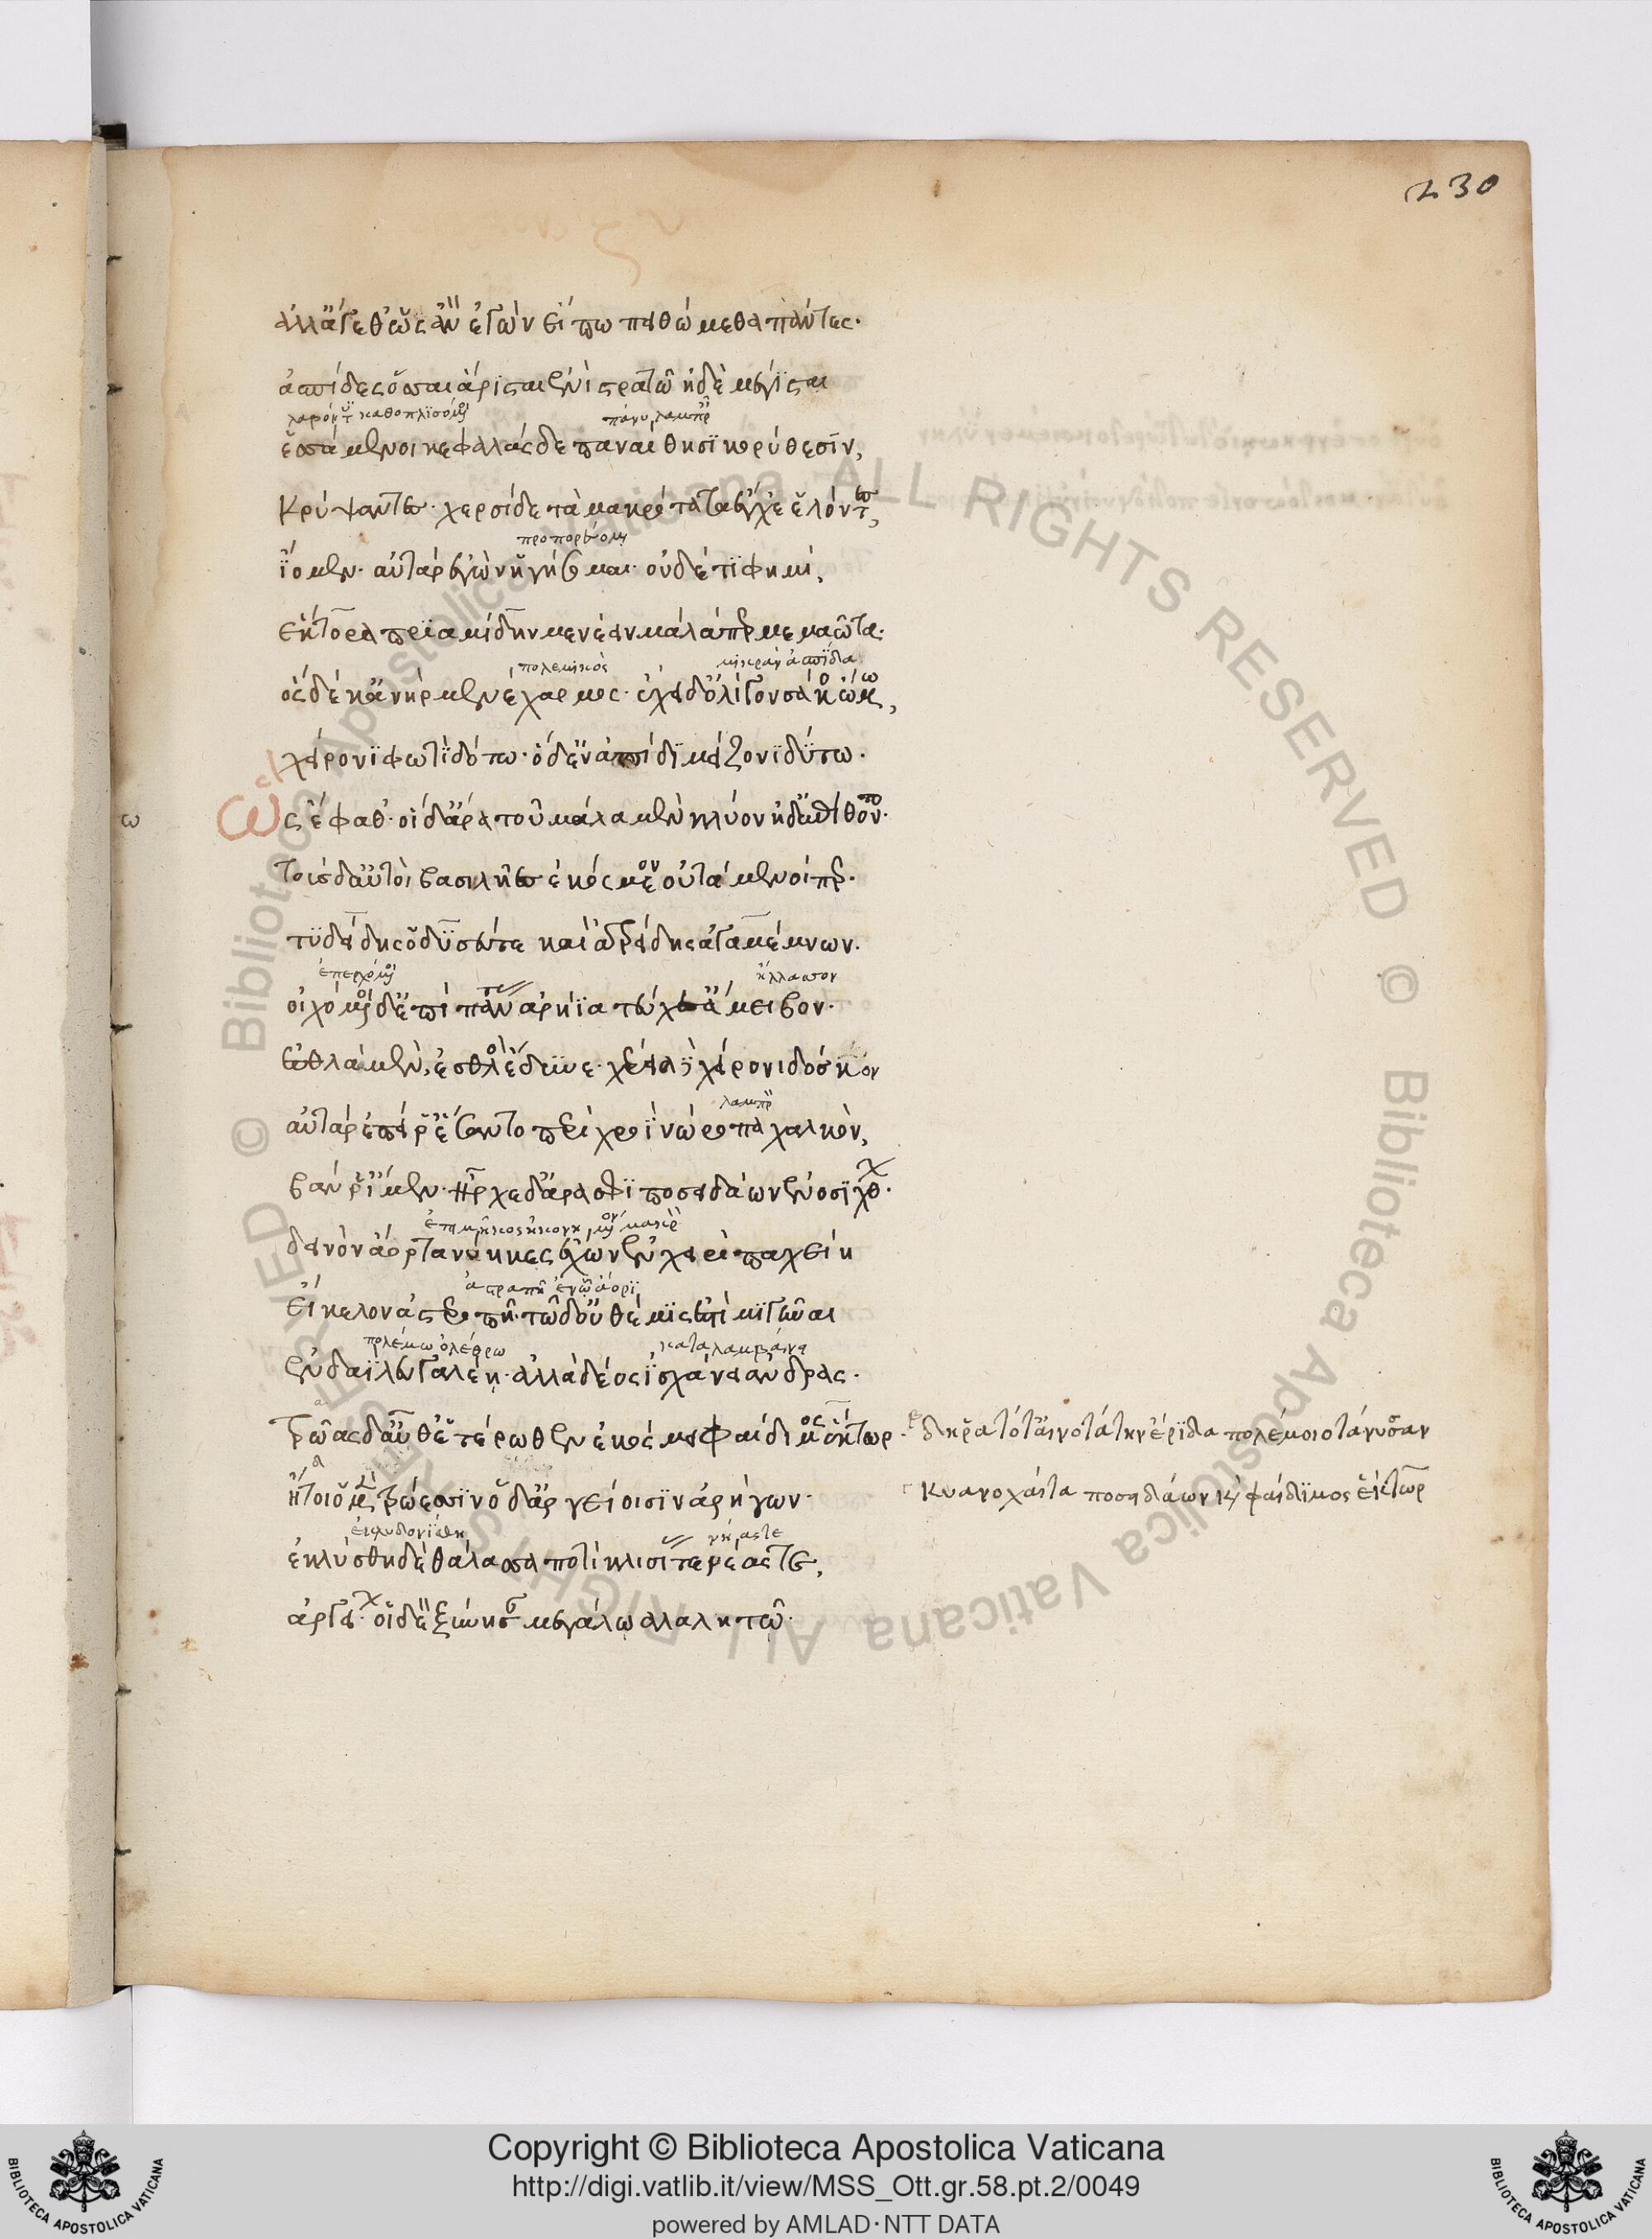 230
ἀλλ' ἄγεθ' ὡς ἂν ἐγὼν εἴπω πειθώμεθα πάντες·
ἀσπίδες ὅσσαι ἄρισται ἐνὶ στρατῶ ἠδὲ μέγισται
καθοπλισόμενοι πάνυ λαμπρ
ἑσσάμενοι κεφαλὰς δὲ παναίθησι κορύθεσιν,
κρύψαντες· χερσὶ δὲ τὰ μακρότατα ἔγχε' ἑλόντες,
προπορεύσομαι
ἴομεν· αὐτὰρ ἐγὼν ἡγήσομαι· οὐδέ τι φημί,
ἕκτορα πριαμίδην μενέειν μάλα περ μεμαῶτα·
πολεμικὸς μικρὰν ἀσπίδα
ὃς δέ κ' ἀνὴρ μενέχαρμος· ἔχει δ' ὀλίγον σάκος ὤμω,
χείρονι φωτὶ δότω· ὁ δ' ἐν ἀσπίδι μείζονι δύτω·
ὣς ἔφαθ'· οἱ δ' ἄρα τοῦ μάλα μὲν κλύον ἠδ' ἐπίθοντο·
ω
τοὺς δ' αὐτοὶ βασιλῆες ἐκόσμεον οὐτάμενοί περ·
τυδείδης ὀδυσεύς τε καὶ ἀτρείδης ἀγαμέμνων·
ἐπερχόμενοι ἤλλασσον
οἰχόμενοι δ' ἐπὶ πάντας ἀρήϊα τεύχε' ἄμειβον·
ἐσθλὰ μὲν, ἐσθλὸς ἔδυνε· χέρεια χείρονι δόσκον
λαμπρ
αὐτὰρ ἐπεί ῥ' ἕσσαντο περὶ χροῒ νώροπα χαλκὸν,
βάν ῥ' ἴμεν· ἦρχε δ' ἄρα σφι ποσειδάων ἐνοσίχθων·
δεινὸν ἄορ τανύηκες ἔχων ἐν χειρὶ παχείη
ἀστραπῆ ἐν τῶ ἄορι
εἴκελον ἀστεροπῆ· τῶ δ' οὐ θέμις ἐστὶ μιγῆναι
πολέμω ὀλέθρω καταλαμβάνει
ἐν δαῒ λευγαλέη· ἀλλὰ δέος ἰσχάνει ἄνδρας·
τρῶας δ' αὖθ' ἑτέρωθεν ἐκόσμει φαίδιμος ἕκτωρ·
δή ῥα τότ' αἰνοτάτην ἔριδα πολέμοιο τάνυσσαν
κυανοχαῖτα ποσειδάων καὶ φαίδιμος ἕκτωρ
ἤτοι ὁ μὲν τρώεσσιν ὁ δ' ἀργείοισιν ἀρήγων·
ἐκλύσθη δὲ θάλασσα ποτὶ κλισίας τε νέας τε,
ἀργείων· οἱ δὲ ξύνισαν μεγάλω ἀλαλητῶ·
Copyright © Biblioteca Apostolica Vaticana
http://digi.vatlib.it/view/MSS_Ott.gr.58.pt.2/0049
powered by AMLAD·NTT DATA